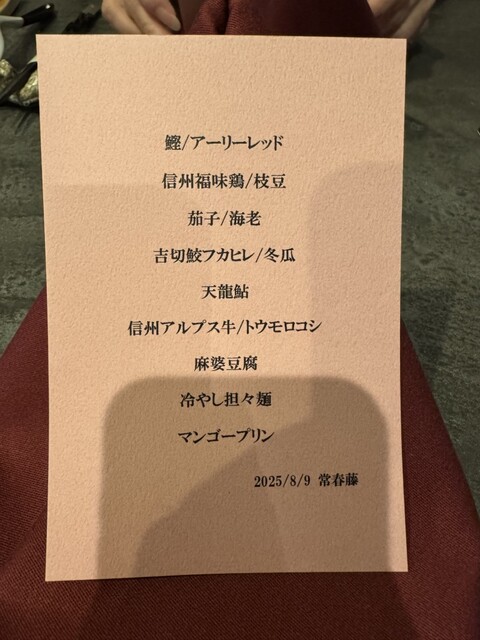 鰹/アーリーレッド
信州福味鶏/枝豆
茄子/海老
吉切鮫フカヒレ/冬瓜
天龍鮎
信州アルプス牛/トウモロコシ
麻婆豆腐
冷やし担々麺
マンゴープリン
2025/8/9 常春藤